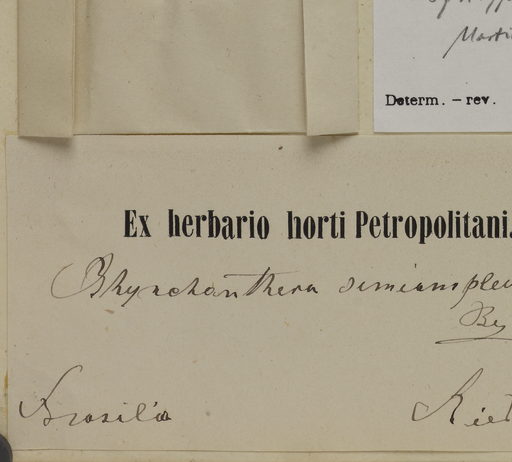 Marti
Determ. – rev.
Ex herbario horti Petropolitani.
Rhynchanthera
By
Brasilia
Ried